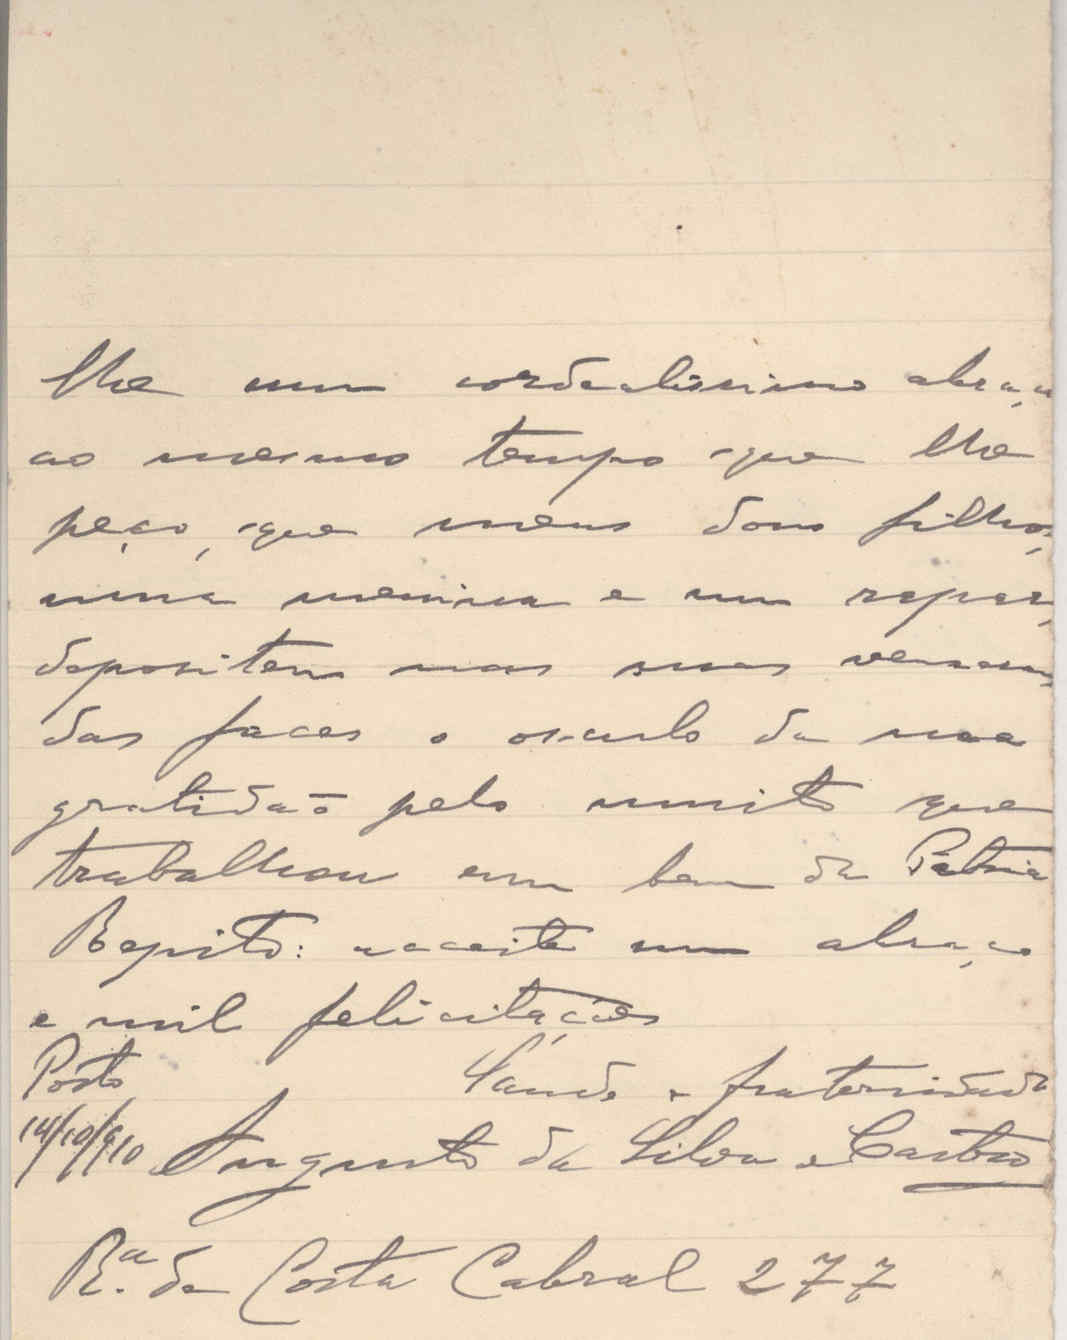 lhe um cordealissimo abraço
ao mesmo tempo que lhe
peço, que meus dous filhos,
uma menina e um rapaz,
depositem nas suas veneran
das faces o osculo da sua
gratidão pelo muito que
trabalhou em bem da Patria
Repito: acceite um abraço
e mil felicitações
Porto Saude e fraternidade
14/10/910 Augusto da Silva e Castro
R.ª da Costa Cabral 277